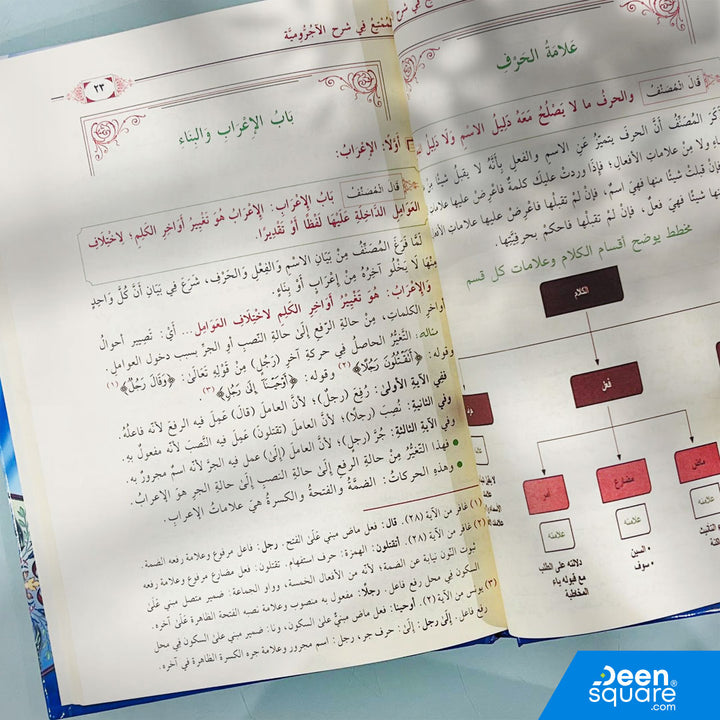 المُمْتِعُ فِي شَرْحِ الآجُرُّومِيَّة
٢٣
بَابُ الإِعْرَابِ وَالبِنَاءِ
أَوَّلًا: الإِعْرَابُ:
قَالَ المُصَنِّفُ
بَابُ الإِعْرَابِ: الإِعْرَابُ هُوَ تَغْيِيرُ أَوَاخِرِ الكَلِمِ؛ لِاخْتِلَافِ
العَوَامِلِ الدَّاخِلَةِ عَلَيْهَا لَفْظًا أَوْ تَقْدِيرًا.
لَمَّا فَرَغَ المُصَنِّفُ مِنْ بَيَانِ الاسْمِ وَالفِعْلِ وَالحَرْفِ، شَرَعَ فِي بَيَانِ أَنَّ كُلَّ وَاحِدٍ
مِنْهَا لَا يَخْلُو آخِرُهُ مِنْ إِعْرَابٍ أَوْ بِنَاءٍ.
وَالإِعْرَابُ: هُوَ تَغْيِيرُ أَوَاخِرِ الكَلِمِ لِاخْتِلَافِ العَوَامِلِ... أَيْ: تَصْيِيرُ أَحْوَالِ
أَوَاخِرِ الكلماتِ، مِنْ حالةِ الرَّفعِ إِلَىٰ حالةِ النَّصبِ أو الجرِّ بسببِ دخولِ العوامل.
مثاله: التَّغَيُّرُ الحاصلُ في حركةِ آخرِ (رَجُل) مِنْ قَوْلِهِ تَعَالَىٰ: ﴿وَقَالَ رَجُلٌ﴾ (١)
وقوله: ﴿أَتَقْتُلُونَ رَجُلًا﴾ (٢) وقوله: ﴿أَوْحَيْنَا إِلَىٰ رَجُلٍ﴾ (٣)
ففي الآيةِ الأولىٰ: رُفِعَ (رجلٌ)؛ لأنَّ العاملَ (قَالَ) عَمِلَ فيه الرفعَ لأنَّه فاعلُهُ.
وفي الثانيةِ: نُصِبَ (رجلًا)؛ لأنَّ العاملَ (تقتلونَ) عَمِلَ فيه النَّصْبَ لأنَّه مفعولٌ به.
وفي الآيةِ الثالثةِ: جُرَّ (رجلٍ)؛ لأنَّ العاملَ (إِلَىٰ) عمل فيه الجرَّ لأنَّه اسمٌ مجرورٌ به.
• فهذا التَّغَيُّرُ مِنْ حالةِ الرفعِ إِلَىٰ حالةِ النصبِ إِلَىٰ حالةِ الجرِ هوَ الإعرابُ.
• وهذه الحركاتُ: الضمَّةُ والفتحةُ والكسرةُ هيَ علاماتُ الإعرابِ.
(١) غافر من الآية (٢٨). قال: فعل ماض مبني عَلَىٰ الفتح. رجل: فاعل مرفوع وعلامة رفعه الضمة.
(٢) غافر من الآية (٢٨). أتقتلون: الهمزة: حرف استفهام. تقتلون: فعل مضارع مرفوع وعلامة رفعه
ثبوت النون نيابة عن الضمة؛ لأنه من الأفعال الخمسة، وواو الجماعة: ضمير متصل مبني عَلَىٰ
السكون في محل رفع فاعل. رجلًا: مفعول به منصوب وعلامة نصبه الفتحة الظاهرة عَلَىٰ آخره.
(٣) يونس من الآية (٢). أوحينا: فعل ماض مبنيٌّ عَلَىٰ السكون، ونا: ضمير مبني عَلَىٰ السكون في محل
رفع فاعل. إلَىٰ رجل: إلَىٰ: حرف جر، رجل: اسم مجرور وعلامة جره الكسرة الظاهرة في آخره.
عَلَامَةُ الحَرْفِ
قَالَ المُصَنِّفُ
والحرفُ ما لا يَصْلُحُ مَعَهُ دَلِيلُ الاسْمِ وَلَا دَلِيلُ
ذَكَرَ المُصَنِّفُ أَنَّ الحرفَ يتميَّزُ عَنِ الاسمِ والفعلِ بأنَّهُ لا يقبلُ شيئًا
ولا مِنْ علاماتِ الأفعالِ؛ فإذَا وردتْ عليكَ كلمةٌ فاعْرِضْ عليها علاماتِ
فإنْ قبلتْ شيئًا منها فهيَ اسمٌ، فإنْ لمْ تقبلْها فاعْرِضْ عليها علاماتِ
شيئًا فهيَ فعلٌ، فإنْ لمْ تقبلْها فاحكمْ بحرفيَّتِها.
مخطط يوضح أقسام الكلام وعلامات كل قسم
الكلام
فعل
ماض
مضارع
أمر
علامته
علامته
علامته
• السين
• سوف
دلالته على الطلب
مع قبوله ياء
المخاطبة
Deen
square
.com